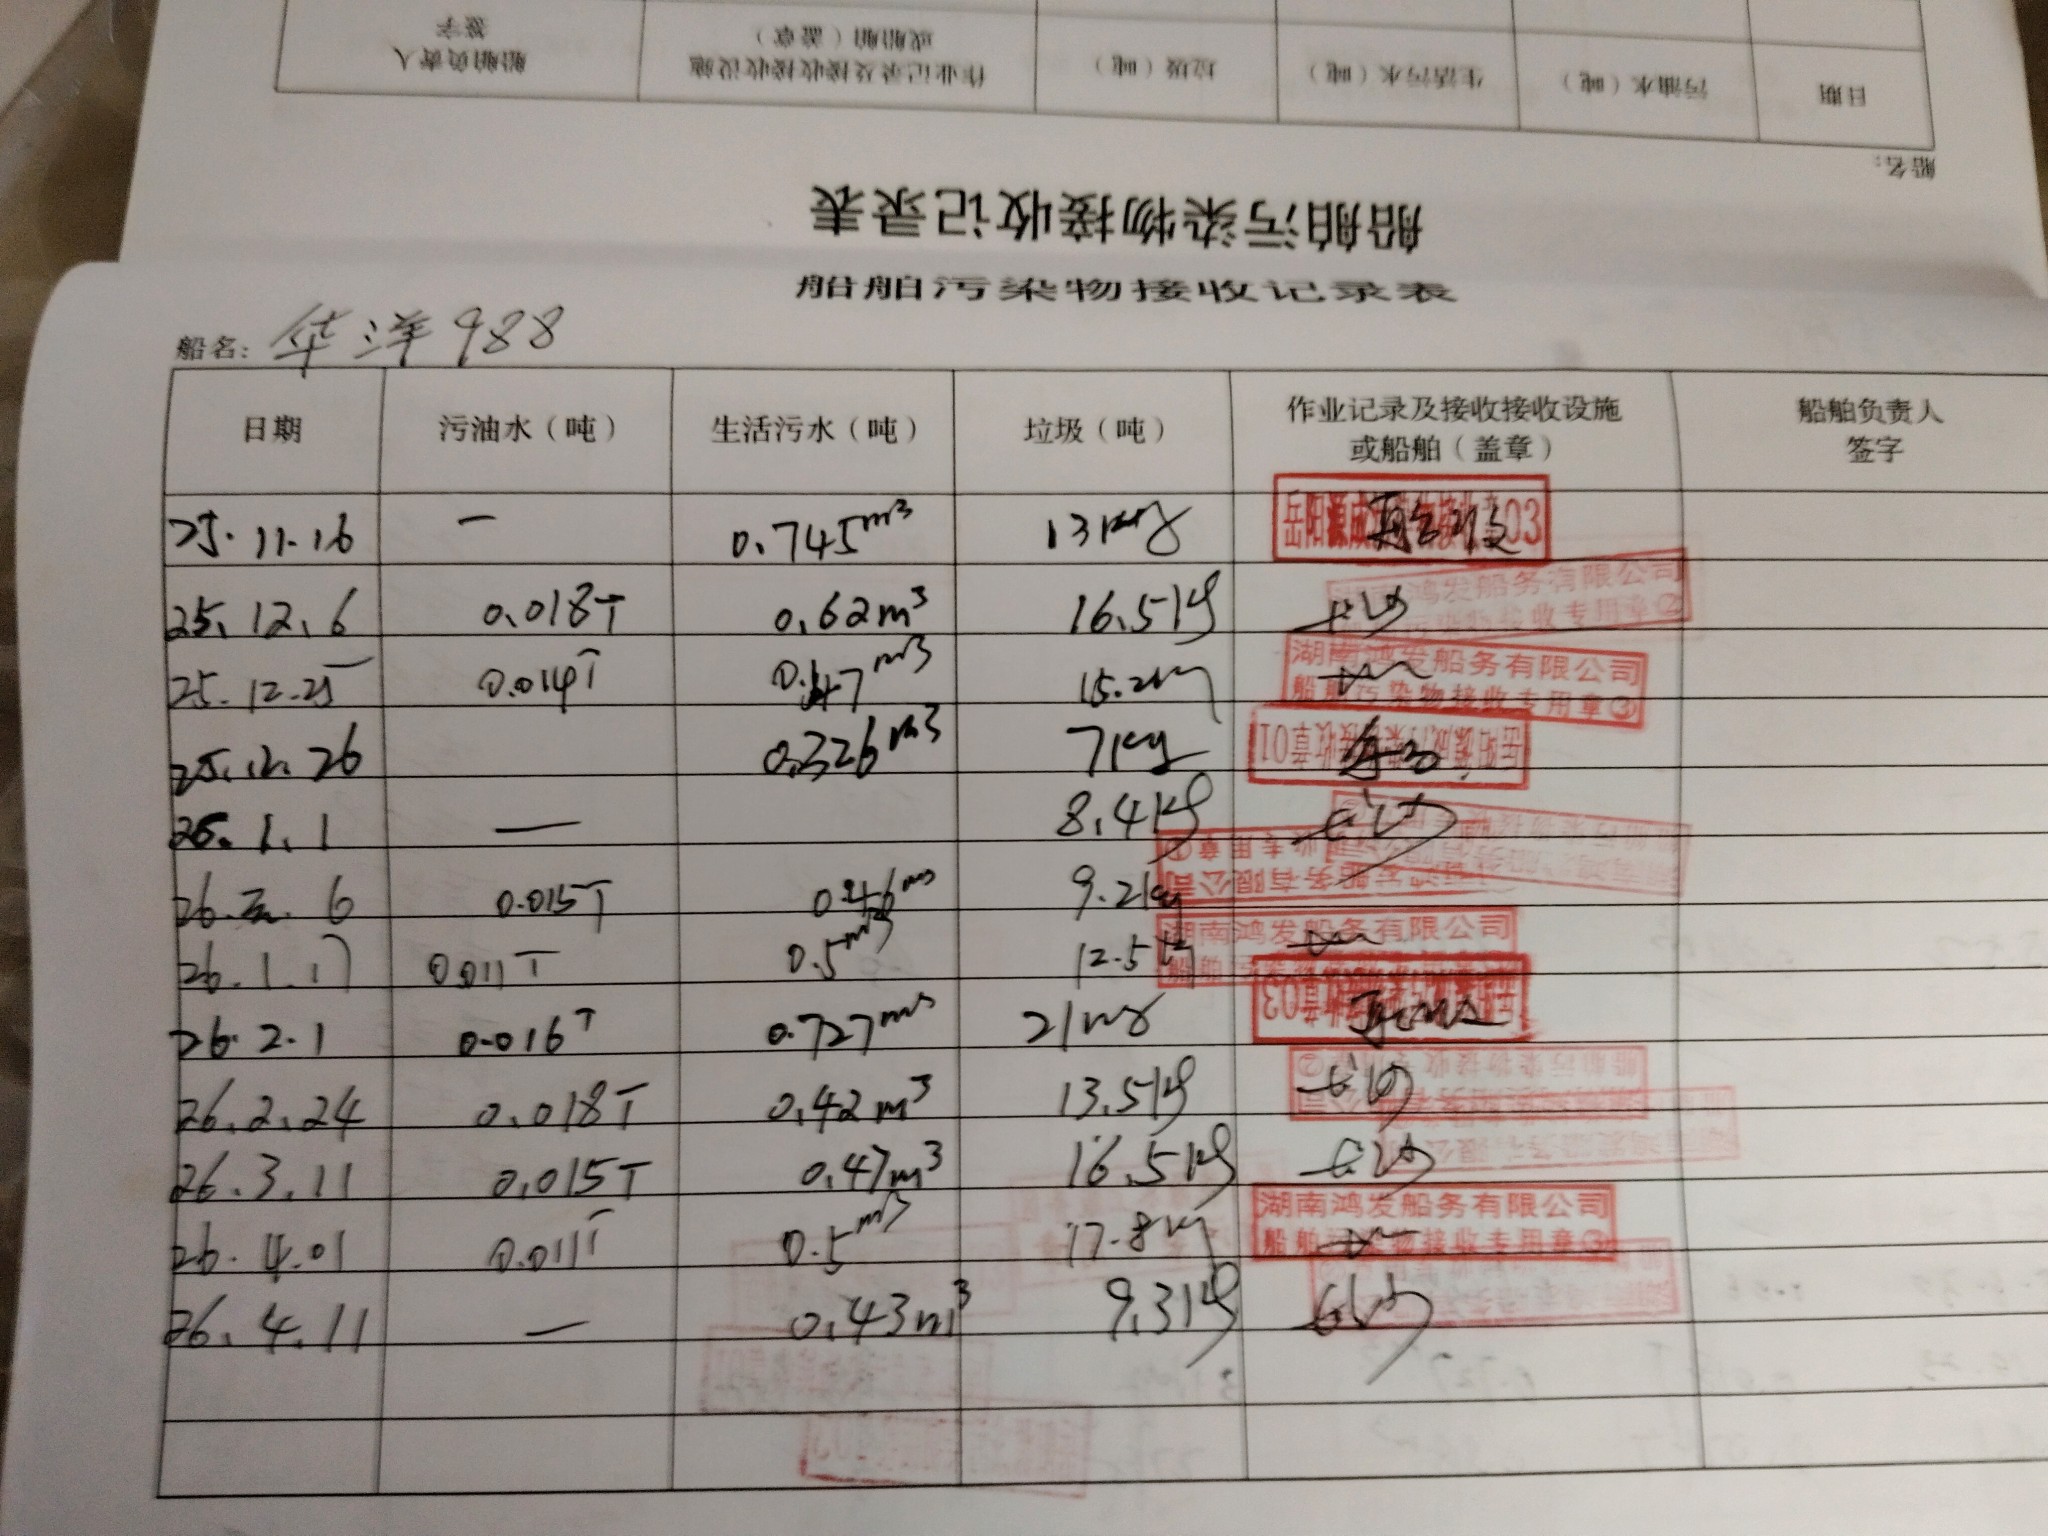 签字
船舶负责人
或船舶（盖章）
作业记录及接收接收设施
垃圾（吨）
生活污水（吨）
污油水（吨）
日期
船名：
船舶污染物接收记录表
船舶污染物接收记录表
船名：华洋988
日期 污油水（吨） 生活污水（吨） 垃圾（吨） 作业记录及接收接收设施 船舶负责人
或船舶（盖章） 签字
25.11.16 — 0.745m³ 13kg
25.12.6 0.018T 0.62m³ 16.5kg
湖南鸿发船务有限公司
船舶污染物接收专用章②
25.12.25 0.014T m³ 15.2kg
湖南鸿发船务有限公司
船舶污染物接收专用章③
25.12.26 0.326m³ 7kg
1.1 — 8.4kg
26. 6 0.015T 0.46m³ 9.2kg
26.1.17 0.011T 0.5m³ 12.5kg
湖南鸿发船务有限公司
26.2.1 0.016T 0.727m³ 21kg
26.2.24 0.018T 0.42m³ 13.5kg
26.3.11 0.015T 0.47m³ 16.5kg
26.4.01 0.011T 0.5m³ 17.8kg
湖南鸿发船务有限公司
船舶污染物接收专用章③
26.4.11 — 0.43m³ 9.3kg